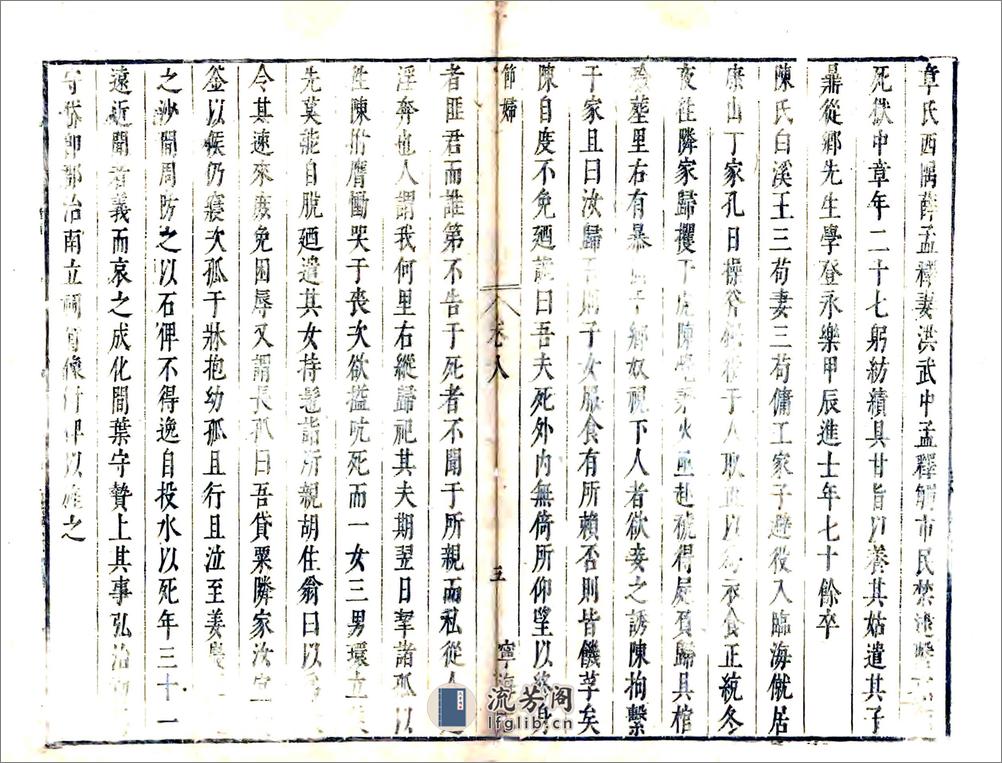 章氏西隅薛孟禧妻洪武中孟釋觸市民禁逮繫
死獄中章年二十七躬紡績具甘旨以養其姑遣其子
鼎從鄉先生學登永樂甲辰進士年七十餘卒
陳氏白溪王三苟妻三苟傭工家子避役入臨海僦居
康山丁家孔日操斧 于人取直以 衣食正統冬
夜往隣家歸攫于虎陳 火亟赴 得屍負歸具棺
塟里右有暴 于鄉奴視下人者欲妾之誘陳拘繫
于家且曰汝歸 則子女服食有所賴否則皆饑莩矣
陳自度不免廼 曰吾夫死外内無倚所仰望以終身
節婦
卷八
五
寧海
者匪君而誰第不告于死者不聞于所親而私從人
淫奔也人謂我何里右縱歸祀其夫期翌日挈諸孤以
陳拊膺慟哭于喪次欲搤吭死而一女三男環立
先莫能自脱廼遣其女持髢詣所親胡住翁曰以
令其速來庻免困辱又謂長孤曰吾貸粟隣家汝
釜以俟仍寢次孤于牀抱幼孤且行且泣至姜
之沙間周防之以石俾不得逸自投水以死年三十一
遠近聞者義而哀之成化間葉守贄上其事弘治
郡治南立祠 像 碑以 之
流芳阁
lfglib.cn